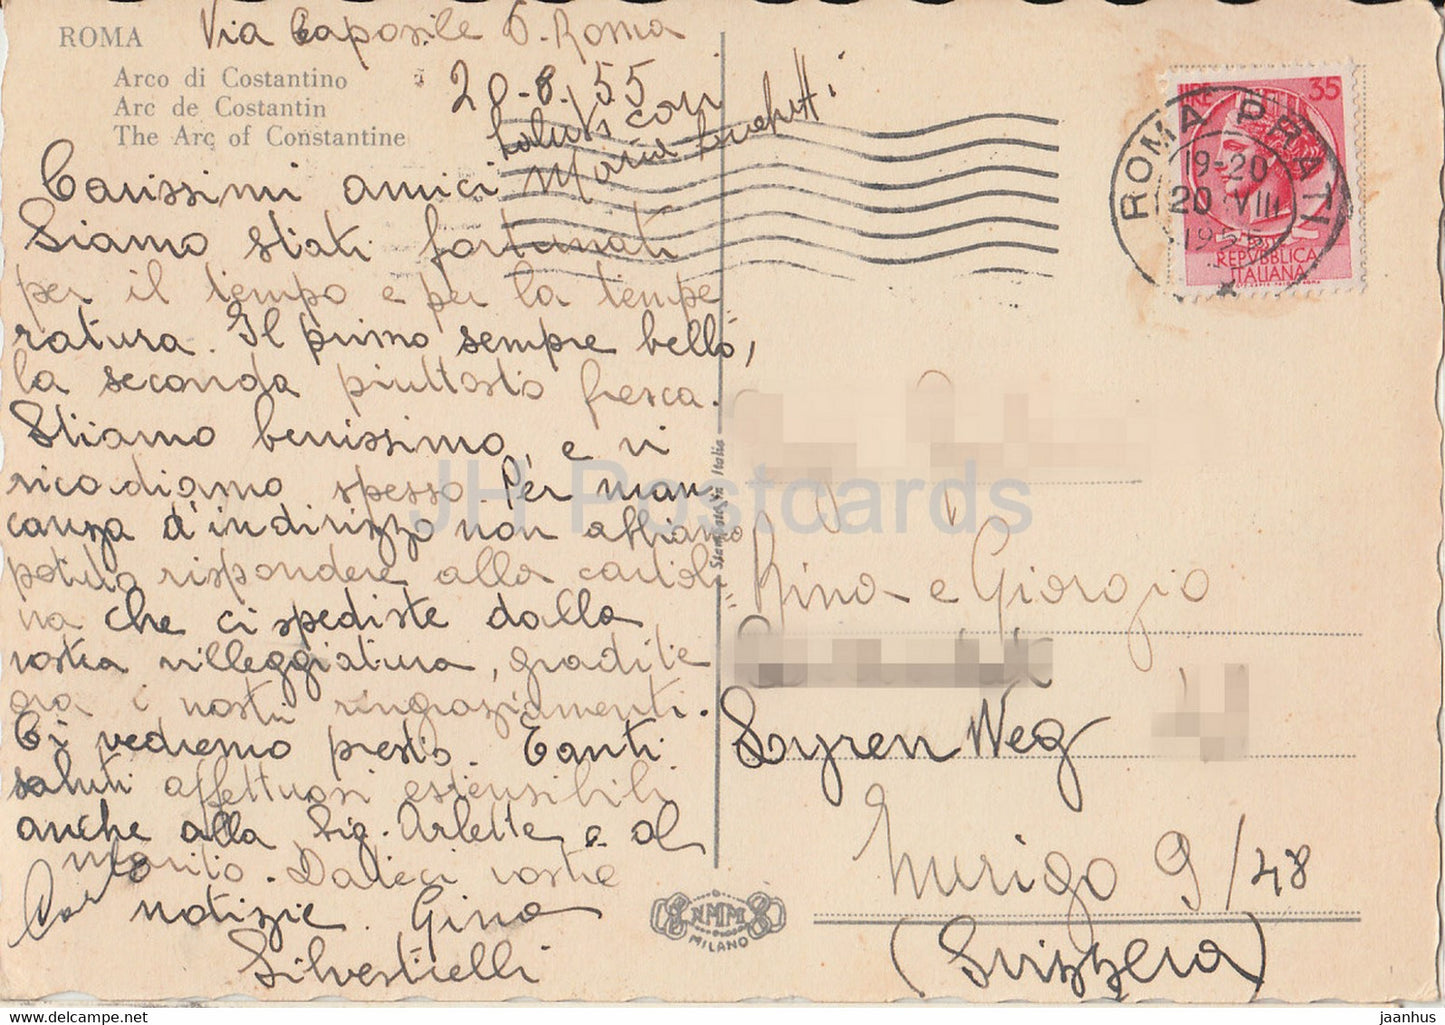 ROMA
Via Caposile 6. Roma
Arco di Costantino
Arc de Costantin
The Arc of Constantine
20-8-55
Saluti cari
Maria
Carissimi amici
Siamo stati fortunati
per il tempo e per la tempe
ratura. Il primo sempre bello,
la seconda piuttosto fresca.
Stiamo benissimo, e vi
ricodiamo spesso. Per man-
canza d'indirizzo non abbiamo
potuto rispondere alla cartoli
na che ci spediste dalla
vostra villeggiatura, gradite
ora i nostri ringraziamenti.
Ci vedremo presto. Tanti
saluti affettuosi estensibili
anche alla Sig. Arlette e al
marito. Dateci vostre
notizie. Gino
Carlo
Silvestrelli
Stampato in Italia
NMM
MILANO
LIRE 35
REPVBBLICA
ITALIANA
ROMA PRATI
19-20
20 VIII
1955
Nina e Giorgio
Soyren Weg
Zurigo 9/48
(Svizzera)
JH Postcards
www.delcampe.net
jaanhus